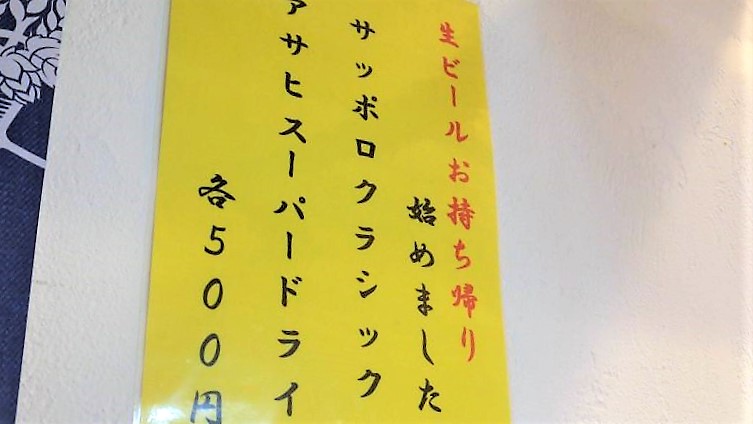 生ビールお持ち帰り
始めました
サッポロクラシック
アサヒスーパードライ
各500円